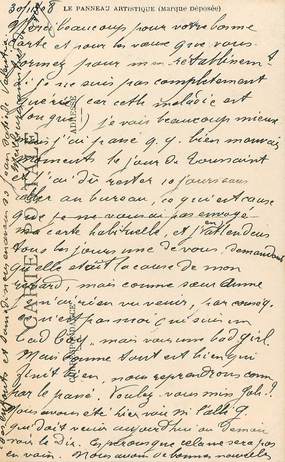 30/11/8
LE PANNEAU ARTISTIQUE (Marque Déposée)
Merci beaucoup pour votre bonne
carte et pour les vœux que vous
formez pour mon rétablissemt.
je ne suis pas complètement
guérie, car cette maladie est
longue! je vais beaucoup mieux
mais j'ai passé q.q. bien mauvais
moments le jour de Toussaint
j'ai dû rester 10 jours sans
aller au bureau, ce qui est cause
que je ne vous ai pas envoyé
ma carte habituelle, et j'attendais
tous les jours une de vous, demandant
quelle était la cause de mon
retard, mais comme sœur Anne
je n'ai rien vu venir, par conséq.
ce n'est pas moi qui suis un
bad boy, mais vous une bad girl.
Mais comme tout est bien qui
finit bien, nous reprendrons com
par le passé. Voulez-vous miss
Nous avons été hier voir
qui doit venir aujourd'hui ou demain
voir le Dr. Espérons que cela ne sera pas
en vain. Nous avons de bonnes nouvelles
CARTE POSTALE
ADRESSE
CORRESPONDANCE